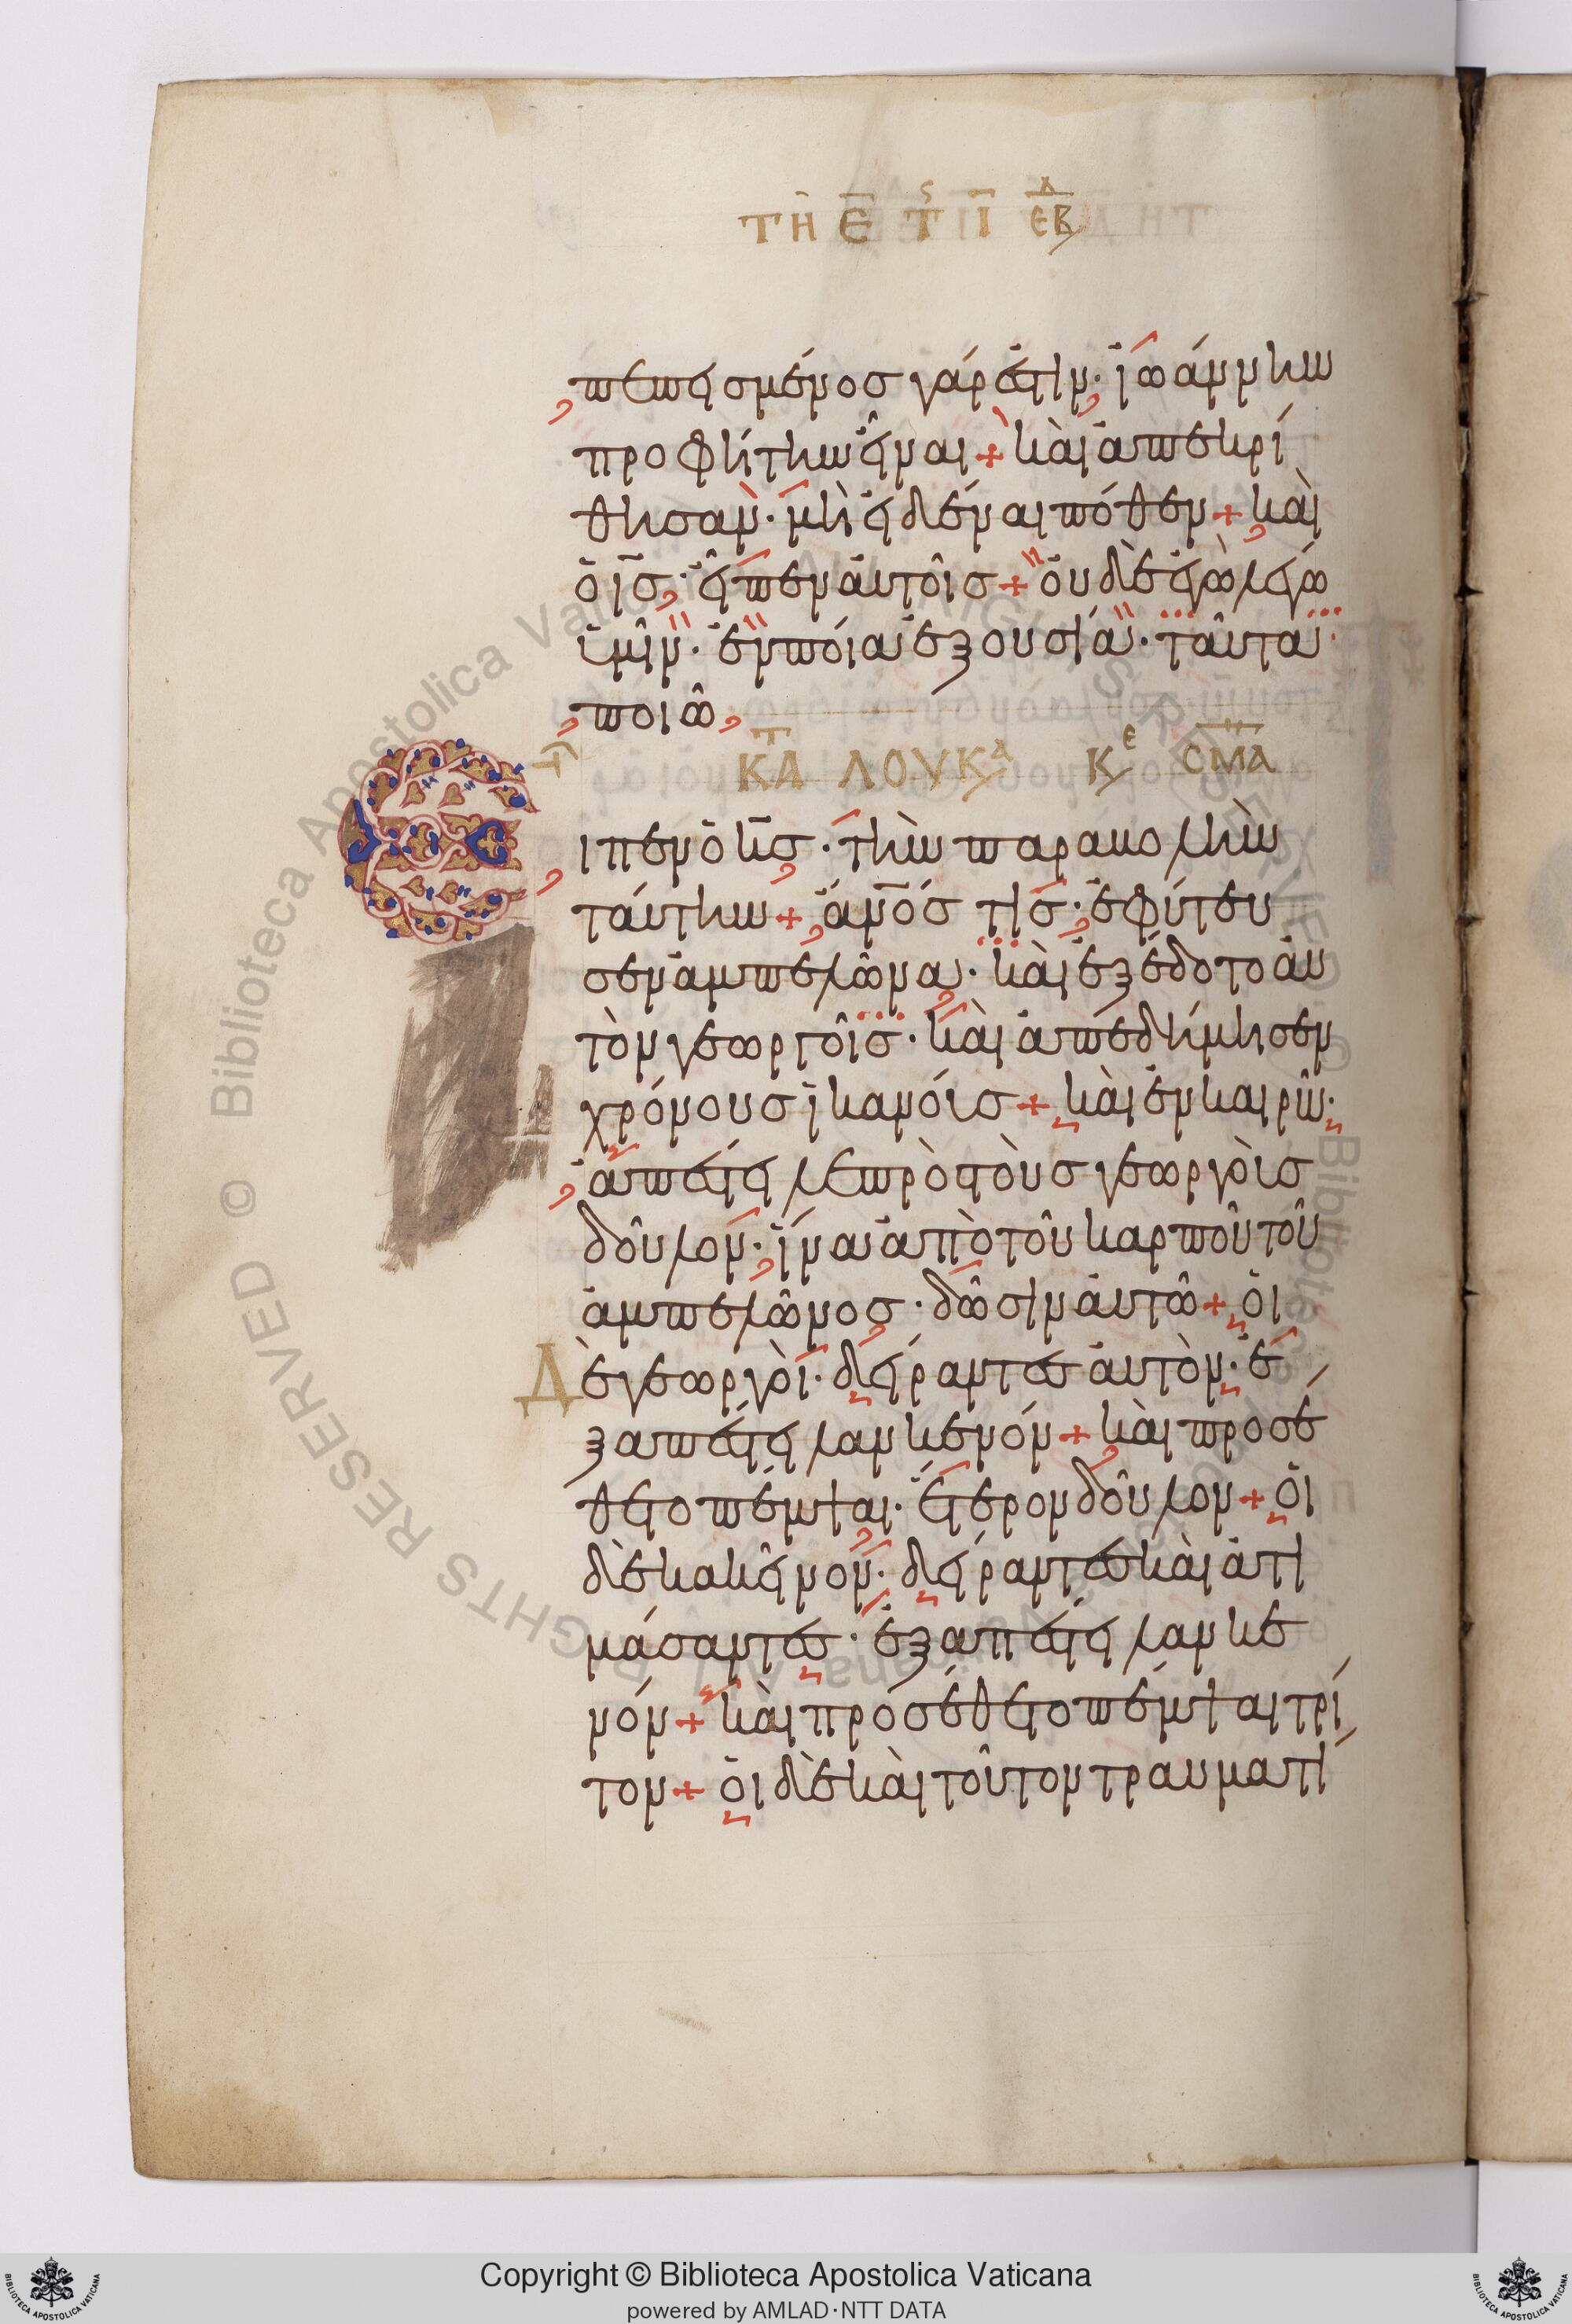 ΤΗ Ε ΤϚ Ι ΕΒΔ
πεπεισμένος γάρ ἐστιν· ἰωάννην
προφήτην εἶναι + καὶ ἀπεκρί
θησαν· μὴ εἰδέναι πόθεν + καὶ
ὁ ις· εἶπεν αὐτοῖς + οὐδὲ ἐγὼ λέγω
ὑμῖν· ἐν ποία ἐξουσία· ταῦτα
ποιῶ
ΚΤΑ ΛΟΥΚΑ ΚΕ ΟΜΑ
Ειπεν ὁ κς· τὴν παραβολὴν
ταύτην + ἄνός τις· ἐφύτευ
σεν ἀμπελῶνα· καὶ ἐξέδοτο αὐ
τὸν γεωργοῖς· καὶ ἀπεδήμησεν
χρόνους ἱκανοίς + καὶ ἐν καιρῶ·
ἀπέστειλε πρὸς τοὺς γεωργοὶς
δοῦλον· ἵνα ἀπὸ τοῦ καρποῦ τοῦ
ἀμπελῶνος· δῶσιν αὐτῶ + οἱ
Δὲ γεωργοὶ· δείραντες αὐτὸν· ἐ
ξαπέστειλαν κενόν + καὶ προσέ
θετο πέμψαι· ἕτερον δοῦλον + οἱ
δὲ κακεῖνον· δείραντες καὶ ἀτι
μάσαντες· ἐξαπέστειλαν κε
νόν + καὶ προσέθετο πέμψαι τρί
τον + οἱ δὲ καὶ τοῦτον τραυματί
© Biblioteca Apostolica Vaticana ALL RIGHTS RESERVED
Copyright © Biblioteca Apostolica Vaticana
powered by AMLAD·NTT DATA
BIBLIOTECA APOSTOLICA VATICANA
BIBLIOTECA APOSTOLICA VATICANA